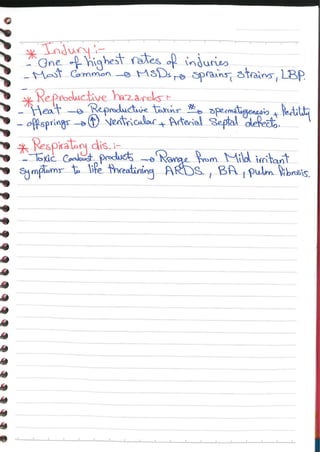 * Injury :-
- One of highest rates of injuries
- Most Common → MSDs → sprains, strains, LBP.
-
* Reproductive hazards :-
- Heat → Reproductive toxins → spermatogenesis + fertility
- offsprings → ↑ Ventricular + Arterial Septal defects.
* Respiratory dis. :-
- Toxic Combust. products → Range from Mild irritant
symptoms to life threatining ARDS, BA, pulm fibrosis.